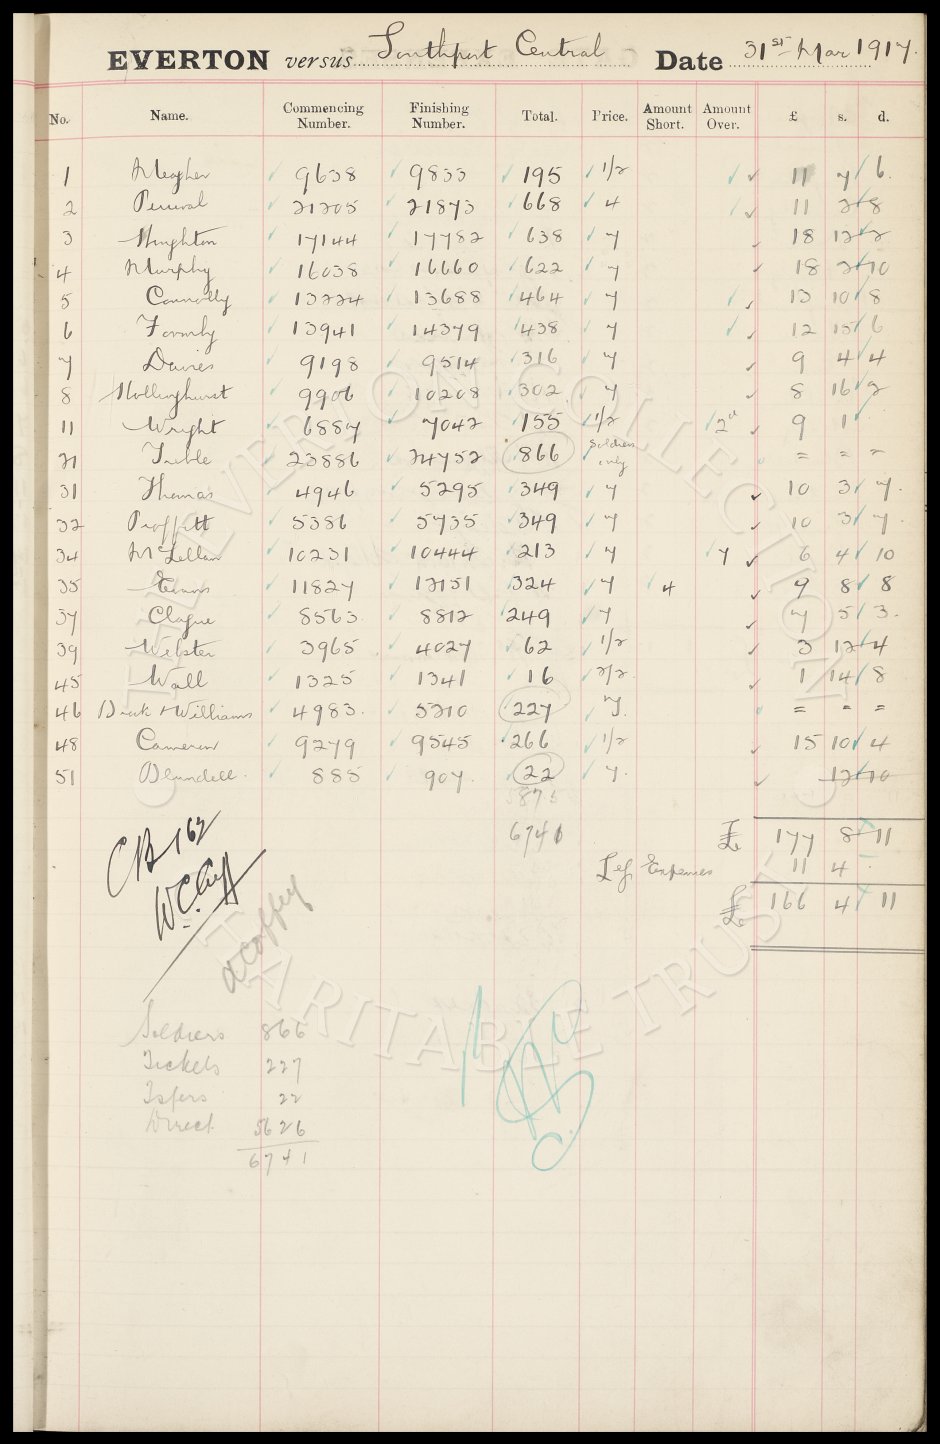 EVERTON versus Southport Central Date 31st Mar 1917.
No. Name. Commencing Number. Finishing Number. Total. Price. Amount Short. Amount Over. £ s. d.
1 Meagher 9638 9833 195 1/2 11 7 6
2 Percival 21205 21873 668 4 11 2 8
3 Houghton 17144 17782 638 7 18 12 2
4 Murphy 16038 16660 622 7 18 2 10
5 Connolly 13224 13688 464 7 13 10 8
6 Formby 13941 14379 438 7 12 15 6
7 Davies 9198 9514 316 7 9 4 4
8 Hollinghurst 9906 10208 302 7 8 16 2
11 Wright 6887 7042 155 1/2 2d 9 1
21 Treble 23886 24752 866 Soldiers only = = =
31 Thomas 4946 5295 349 7 10 3 7
32 Proffitt 5386 5735 349 7 10 3 7
34 McLellan 10231 10444 213 7 7 6 4 10
35 Evans 11827 12151 324 7 4 9 8 8
37 Clague 8563 8812 249 7 7 5 3
39 Webster 3965 4027 62 1/2 3 12 4
45 Wall 1325 1341 16 2/2 1 14 8
46 Williams 4983 5210 227 = = =
48 Cameron 9279 9545 266 1/2 15 10 4
51 Blundell 885 907 22 7 12 10
6741 £ 177 8 11
Expenses 11 4
£ 166 4 11
CB 162
W.C. Cuff
Soldiers 866
Tickets 227
Tsfers 22
Direct 5626
6741
THE EVERTON COLLECTION
CHARITABLE TRUST